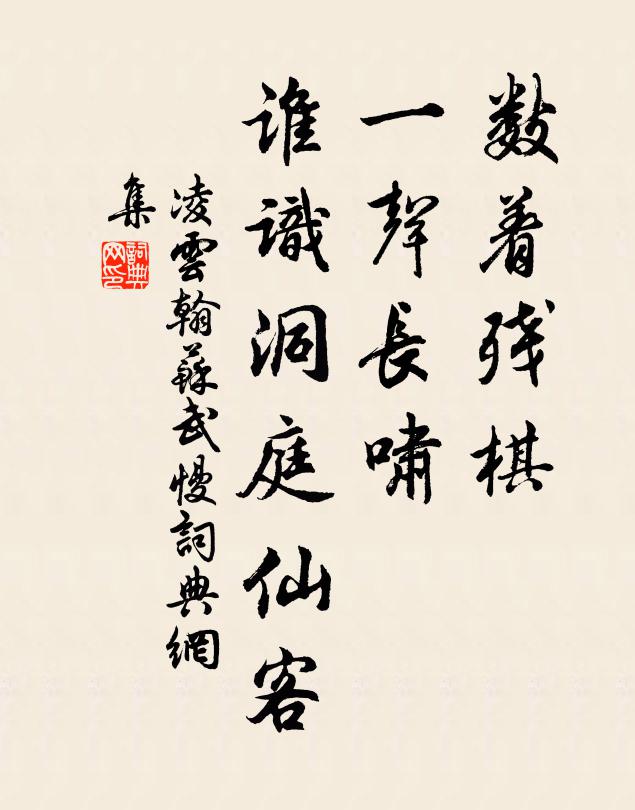 数着残棋
一聲長嘯
誰識洞庭仙客
凌雲翰蘇武慢詞典網
集
詞典
网印